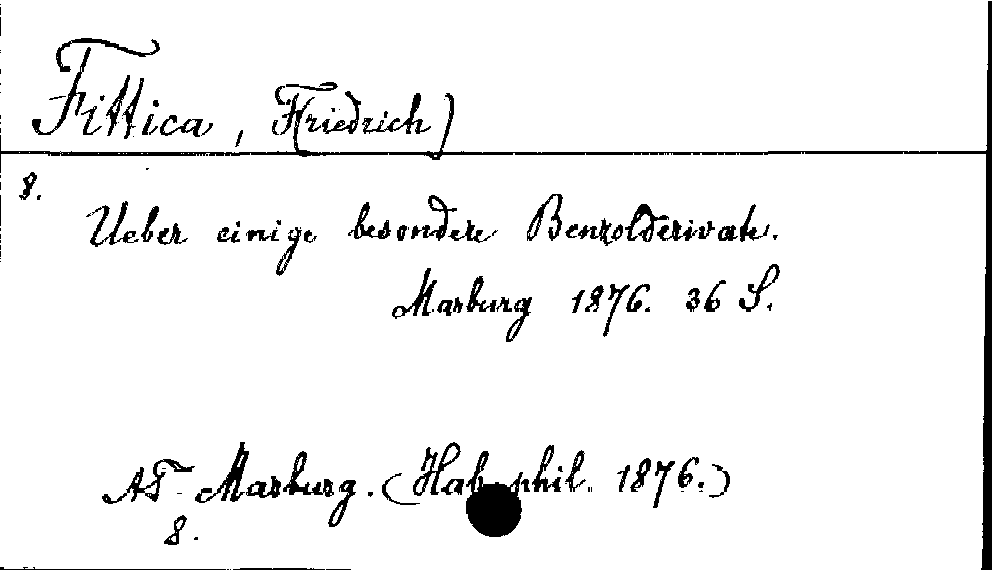 Fittica, F(riedrich)
8.
Ueber einige besondere Benzolderivate.
Marburg 1876. 36 S.
AT Marburg. (Hab. phil. 1876.)
8.